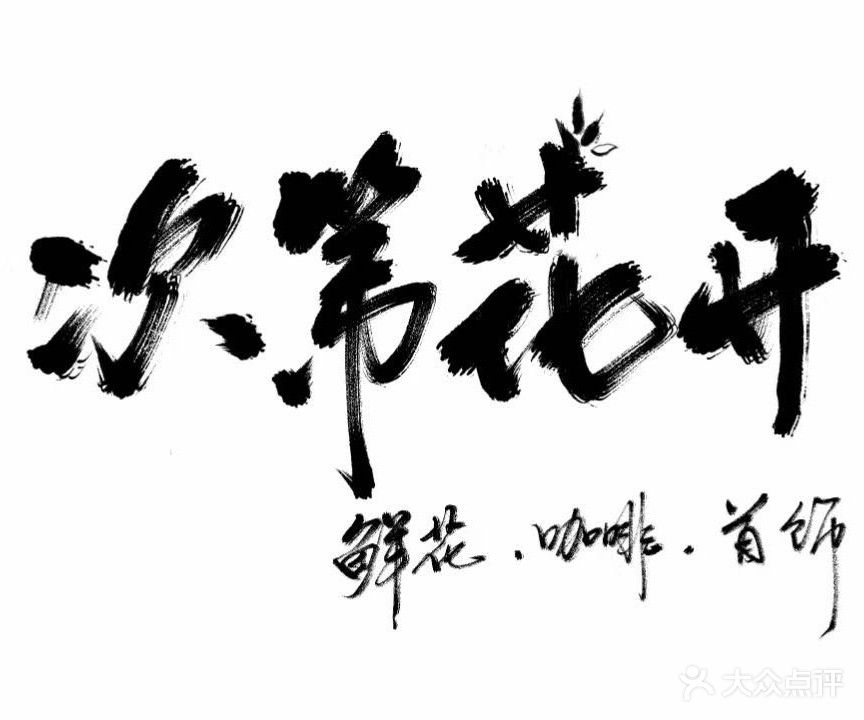 次第花开
鲜花.咖啡.首饰
大众点评